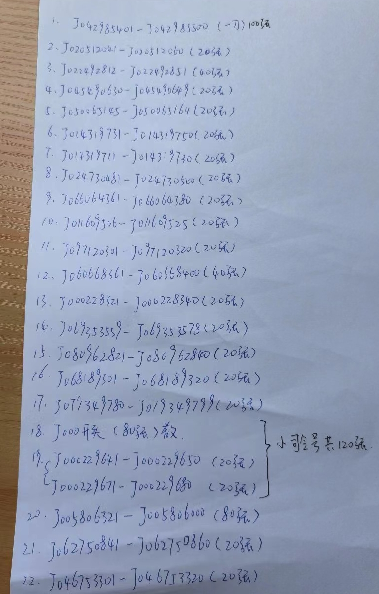 1. J042985401-J042985500 (一刀)100张
2. J020512041-J020512060 (20张)
3. J022492812-J022492851 (40张)
4. J045490630-J045490649 (20张)
5. J050065145-J050065164 (20张)
6. J014319731-J014319750 (20张)
7. J014319711-J014319730 (20张)
8. J024730481-J024730500 (20张)
9. J066064361-J066064380 (20张)
10. (20张)
11. J097120301-J097120320 (20张)
12. J060668361-J060668400 (40张)
13. J000228321-J000228340 (20张)
14. J069353559-J069353578 (20张)
15. J080962821-J080962840 (20张)
16. J068189301-J068189320 (20张)
17. J019349780-J019349799 (20张)
18. J000开头 (80张)散
19. J000229641-J000229650 (20张)
J000229671-J000229680 (20张)
小司令号 共120张
20. J005806321-J005806000 (80张)
21. J062750841-J062750860 (20张)
22. J046753301-J046753320 (20张)